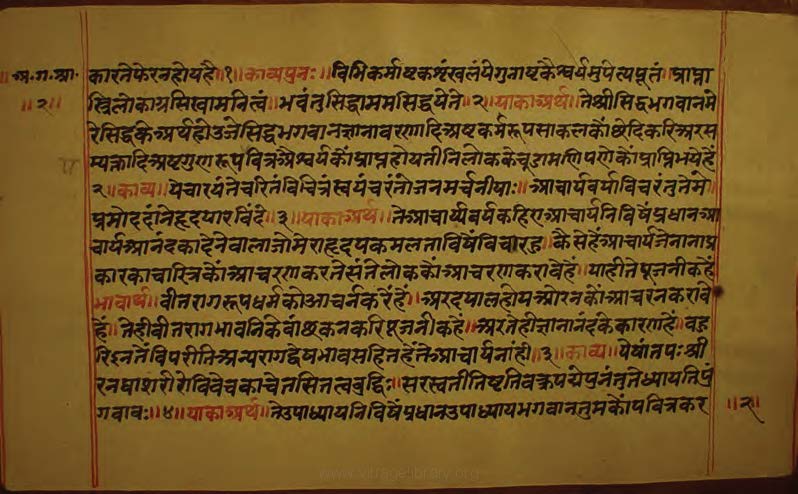 अ.ग.आ. कारनेफेरनहोयहै॥१॥काव्यपुनः॥विभिकर्माष्टकशृंखलंयेगुनाष्टकैश्वर्यमुपेत्यपूतं॥प्राप्ता
॥२॥ स्त्रिलोकाग्रसिखामनित्वं॥भवंतुसिद्धाममसिद्धयेते॥२॥याकाअर्थ॥तेश्रीसिद्धभगवानमे
रेसिद्धकेअर्थहोउजेसिद्धभगवानज्ञानावरणादिअष्टकर्मरूपसाकलकौंछेदिकरिअरस
म्यक्तादिअष्टगुणरूपवित्रऐश्वर्यकौंप्राप्तहोयतीनिलोककेचूडामणिपणेकौंप्राप्तिभयेहैं
२॥काव्य॥येचारयंतेचरितंविचित्रंस्वयंचरंतोजनमर्चनीयाः॥आचार्यवर्याविचरंतुतेमे
प्रमोददांनेहृदयारविंदे॥३॥याकाअर्थ॥तेआचार्यवर्यकहिएआचार्यनिविषैंप्रधानआ
चार्यआनंदकादेनेवालाजोमेराहृदयकमलताविषैंविचारहु॥कैसेहैंआचार्यजेनानाप्र
कारकाचारित्रकौंआचरणकरतेसंतेलोककौंआचरणकरावेहैं॥याहीतेपूजनीकहैं
भावार्थ॥वीतरागरूपधर्मकोआचर्नकरैंहैं॥अरदयालहोयओरनकौंआचरनकरावे
हैं॥तेहीवीतरागभावनिकेवांछकनकरिपूजनीकहैं॥अरतेहीज्ञानानंदकेकारणहैं॥बहु
रिइनतेंविपरीतिअन्यरागद्वेषभावसहितहैंतेआचार्यनांही॥३॥काव्य॥येषांतपःश्री
रनघाशरीरेविवेचकाचेतसितत्वबुद्धिः॥सरस्वतीतिष्टतिवक्रपद्मेपुनंतुतेध्यायतिपुं
गवावः॥४॥याकाअर्थ॥तेउपाध्यायनिविषैंप्रधानउपाध्यायभगवानतुमकौंपवित्रकर ॥२॥
www.vitragelibrary.org